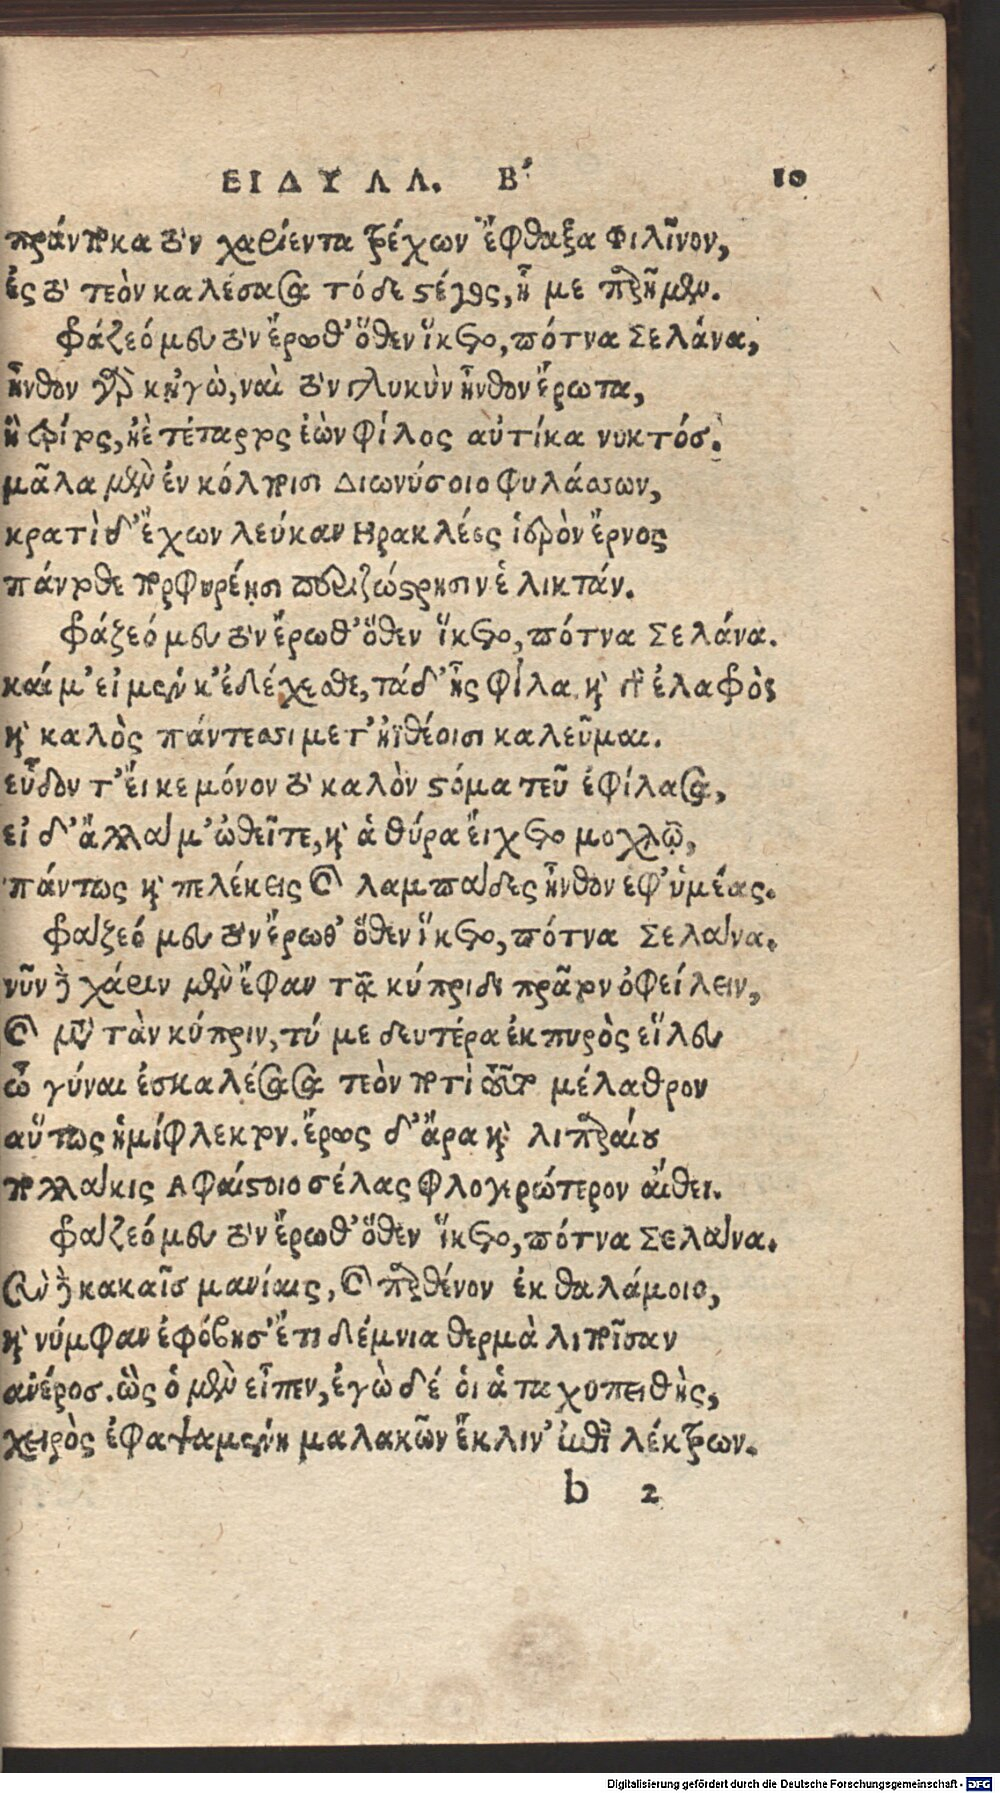 ΕΙΔΥΛΛ. Β´ 10
πράντοκα τὸν χαρίεντα τρέχων ἔφθαξα Φιλῖνον,
ἐς τὸ τεὸν καλέσασα τόδε στέγος, ἤ με παρῆμεν.
φράζεό μευ τὸν ἔρωθ' ὅθεν ἵκετο, πότνα Σελάνα,
ἦνθον γὰρ κἠγὼ, ναὶ τὸν γλυκὺν ἦνθον ἔρωτα,
ἢ τρίτος, ἠὲ τέταρτος ἐὼν φίλος αὐτίκα νυκτός.
μᾶλα μὲν ἐν κόλποισι Διωνύσοιο φυλάσσων,
κρατὶ δ' ἔχων λεύκαν Ηρακλέεος ἱερὸν ἔρνος
πάντοθε πορφυρέῃσι περιζώστρησιν ἑλικτάν.
φράζεό μευ τὸν ἔρωθ' ὅθεν ἵκετο, πότνα Σελάνα.
καί μ' εἰ μέν κ' ἐδέχεσθε, τάδ' ἦς φίλα. καὶ γὰρ ἐλαφρὸς
καὶ καλὸς πάντεσσι μετ' ἠϊθέοισι καλεῦμαι.
εὗδόν τ' εἴ κε μόνον τὸ καλὸν στόμα τεῦ ἐφίλασα,
εἰ δ' ἄλλᾳ μ' ὠθεῖτε, καὶ ἁ θύρα εἴχετο μοχλῷ,
πάντως καὶ πελέκεις καὶ λαμπάδες ἦνθον ἐφ' ὑμέας.
φράζεό μευ τὸν ἔρωθ' ὅθεν ἵκετο, πότνα Σελάνα.
νῦν δὲ χάριν μὲν ἔφαν τᾷ κύπριδι πρᾶτον ὀφείλειν,
καὶ μετὰ τὰν κύπριν, τύ με δευτέρα ἐκ πυρὸς εἵλευ
ὦ γύναι ἐσκαλέσασα τεὸν ποτὶ τοῦτο μέλαθρον
αὔτως ἡμίφλεκτον. ἔρως δ' ἄρα καὶ λιπαραίου
πολλάκις Αφαίστοιο σέλας φλογερώτερον αἴθει.
φράζεό μευ τὸν ἔρωθ' ὅθεν ἵκετο, πότνα Σελάνα.
σὺν δὲ κακαῖσ μανίαις, καὶ παρθένον ἐκ θαλάμοιο,
καὶ νύμφαν ἐφόβησ' ἔτι δέμνια θερμὰ λιποῖσαν
ἀνέροσ. ὣς ὁ μὲν εἶπεν, ἐγὼ δέ οἱ ἁ ταχυπειθὴς,
χειρὸς ἐφαψαμένη μαλακῶν ἔκλιν' ἐπὶ λέκτρων.
b 2
Digitalisierung gefördert durch die Deutsche Forschungsgemeinschaft - DFG